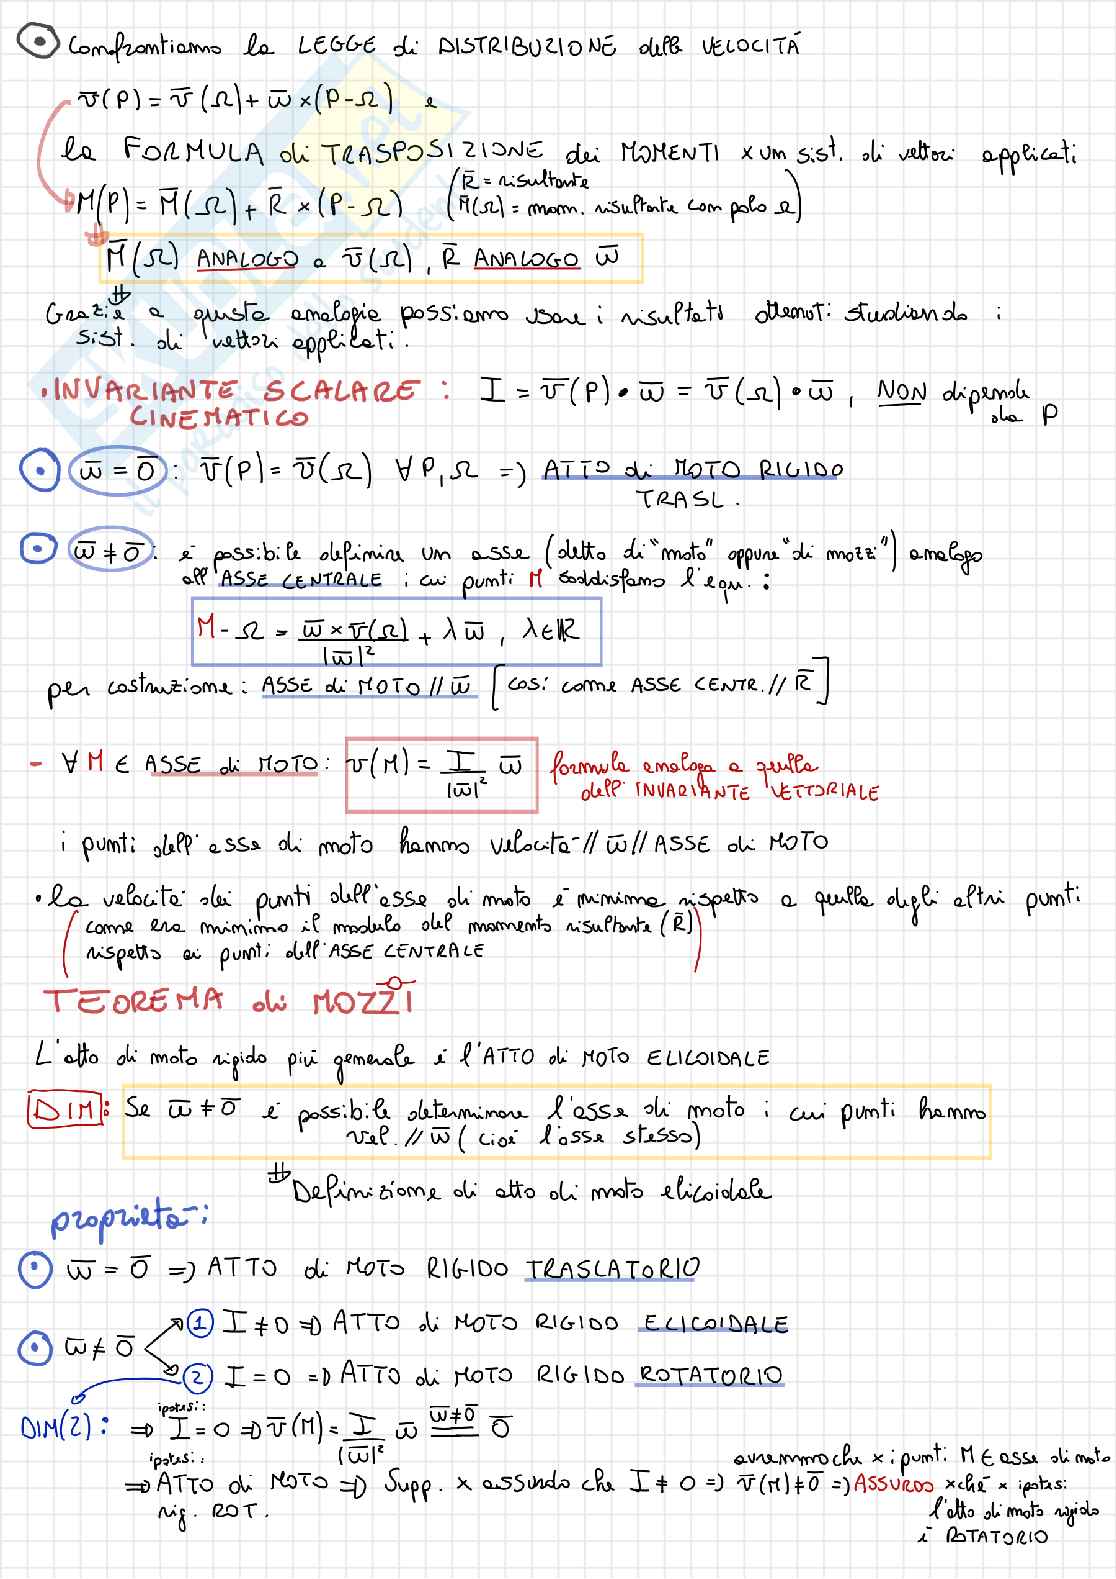 Confrontiamo la LEGGE di DISTRIBUZIONE della VELOCITÁ
v̄(P) = v̄(Ω) + w̄ × (P-Ω) e
la FORMULA di TRASPOSIZIONE dei MOMENTI x un sist. di vettori applicati
M̄(P) = M̄(Ω) + R̄ × (P-Ω) (R̄ = risultante
M̄(Ω) = mom. risultante con polo Ω)
M̄(Ω) ANALOGO a v̄(Ω), R̄ ANALOGO w̄
Grazie a questa analogia possiamo usare i risultati ottenuti studiando i
sist. di vettori applicati.
• INVARIANTE SCALARE : I = v̄(P) • w̄ = v̄(Ω) • w̄, NON dipende
CINEMATICO da P
w̄ = 0̄ : v̄(P) = v̄(Ω) ∀ P, Ω => ATTO di MOTO RIGIDO
TRASL.
w̄ ≠ 0̄ : è possibile definire un asse (detto di "moto" oppure "di mozzi") analogo
all'ASSE CENTRALE i cui punti M soddisfano l'equ. :
M - Ω = w̄ × v̄(Ω) / |w̄|² + λ w̄, λ ∈ ℝ
per costruzione: ASSE di MOTO // w̄ [così come ASSE CENTR. // R̄]
- ∀ M ∈ ASSE di MOTO: v(M) = I / |w̄|² w̄ formula analoga a quella
dell'INVARIANTE VETTORIALE
i punti dell'asse di moto hanno velocità // w̄ // ASSE di MOTO
• la velocità dei punti dell'asse di moto è minima rispetto a quella degli altri punti
(come era minimo il modulo del momento risultante (R̄)
rispetto ai punti dell'ASSE CENTRALE)
TEOREMA di MOZZI
L'atto di moto rigido più generale è l'ATTO di MOTO ELICOIDALE
DIM: Se w̄ ≠ 0̄ è possibile determinare l'asse di moto i cui punti hanno
vel. // w̄ (cioè l'asse stesso)
Definizione di atto di moto elicoidale
proprietà:
w̄ = 0̄ => ATTO di MOTO RIGIDO TRASLATORIO
① I ≠ 0 => ATTO di MOTO RIGIDO ELICOIDALE
w̄ ≠ 0̄
② I = 0 => ATTO di MOTO RIGIDO ROTATORIO
DIM(2): => ipotesi: I = 0 => v̄(M) = I / |w̄|² w̄ = (w̄≠0̄) 0̄
=> ipotesi: ATTO di MOTO => Supp. x assurdo che I ≠ 0 => avremmo che x i punti M ∈ asse di moto
rig. ROT. v̄(M) ≠ 0̄ => ASSURDO xché x ipotesi
l'atto di moto rigido
è ROTATORIO